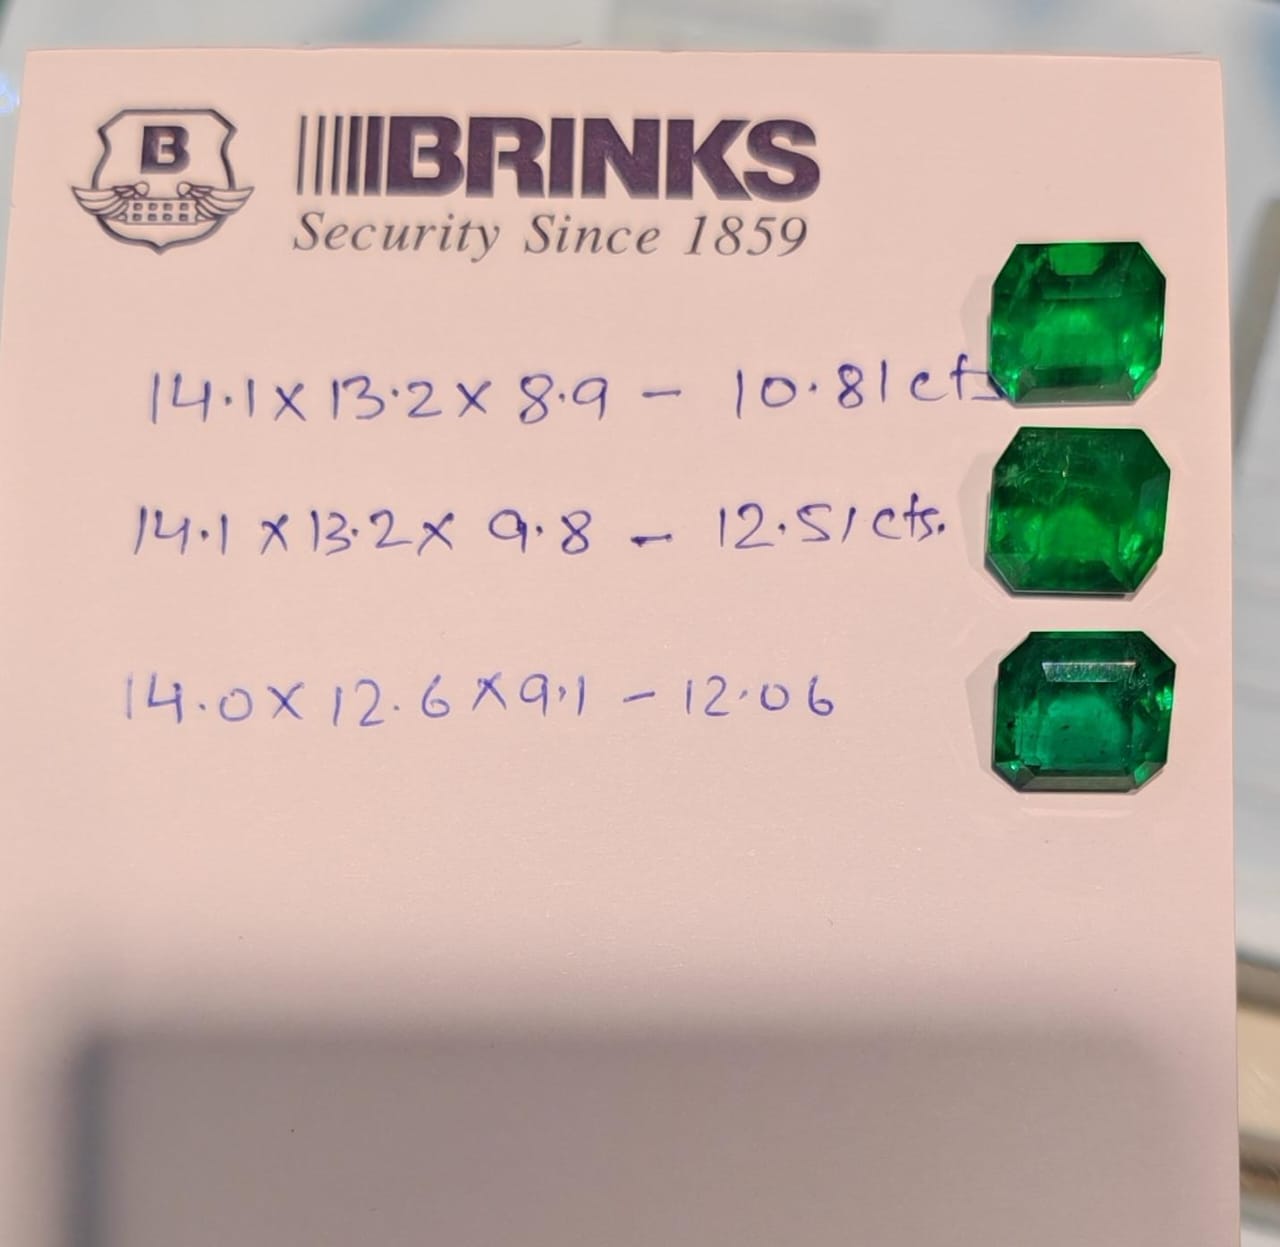 B
BRINKS
Security Since 1859
14.1 x 13.2 x 8.9 - 10.81 cts
14.1 x 13.2 x 9.8 - 12.51 cts.
14.0 x 12.6 x 9.1 - 12.06